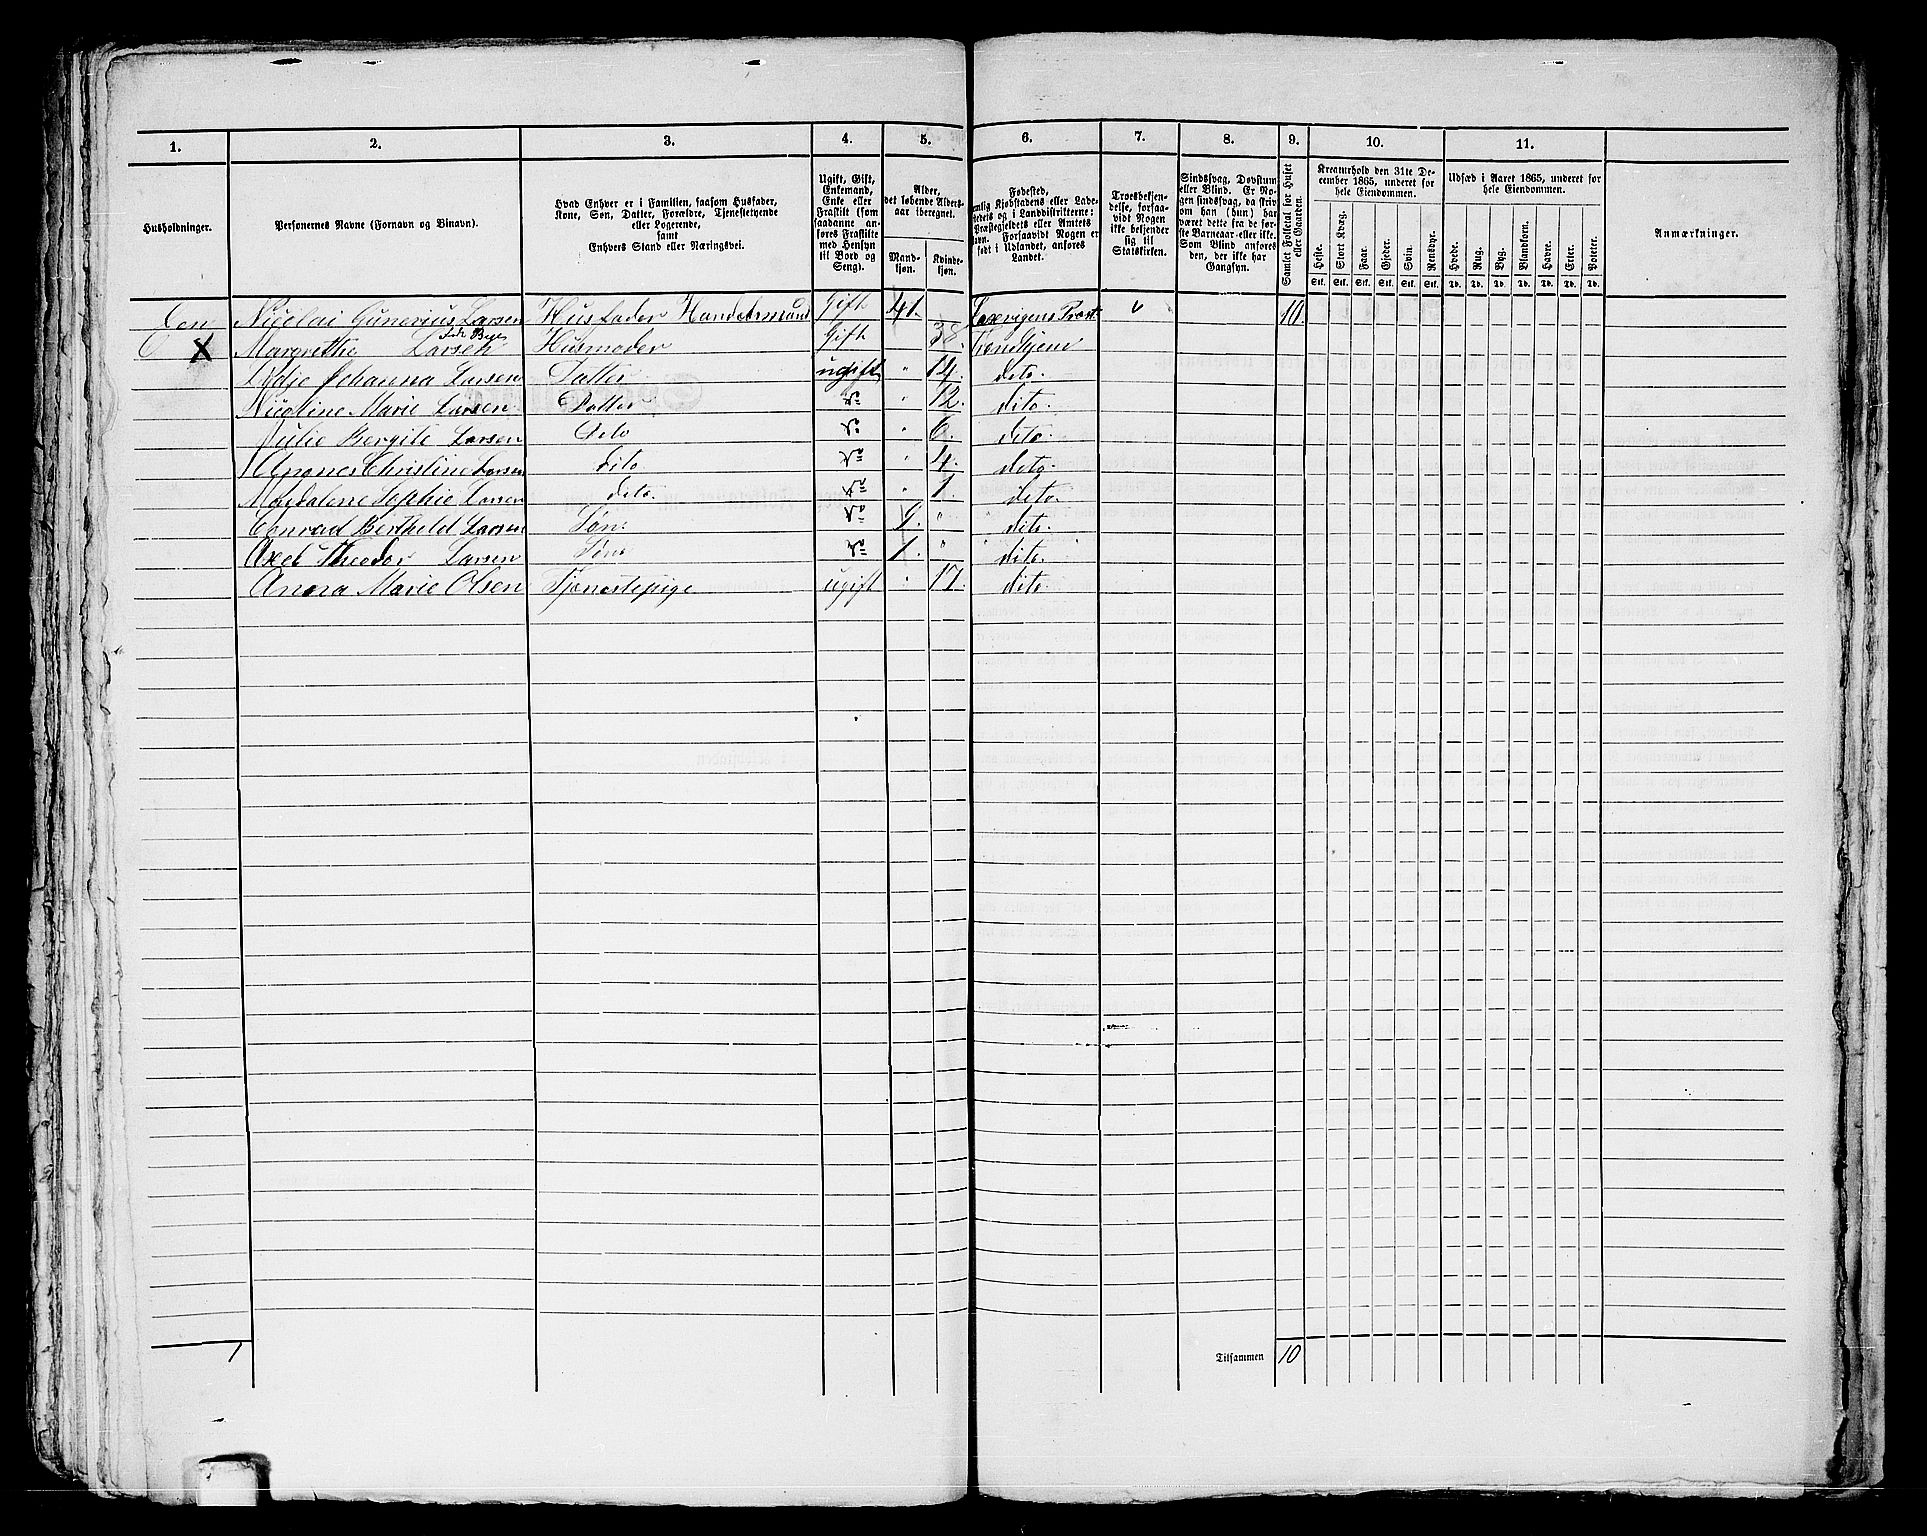 1. 2. 3. 4. 5. 6. 7. 8. 9. 10. 11.
Husholdninger.
Personernes Navne (Fornavn og Binavn).
Hvad Enhver er i Familien, saasom Husfader,
Kone, Søn, Datter, Forældre, Tjenestetyende
eller Logerende,
samt
Enhvers Stand eller Næringsvei.
Ugift, Gift,
Enkemand,
Enke eller
Fraskilt (som
saadanne an-
føres Fraskilte
med Hensyn
til Bord og
Seng).
Alder,
det løbende Alders-
aar iberegnet.
Mand-
kjøn.
Kvinde-
kjøn.
Fødested,
Kjøbstadens eller Lade-
stedets og i Landdistrikterne:
Præstegjeldets eller Amtets
Navn. Forsaavidt Nogen er
født i Udlandet, anføres
Landet.
Troesbekjen-
delse, forsaa-
vidt Nogen
ikke bekjender
sig til
Statskirken.
Sindssvag, Døvstum
eller Blind. Er No-
gen sindssvag, da skriv
om han (hun) har
været dette fra de før-
ste Barneaar eller ikke.
Som Blind anføres
den, der ikke har
Gangsyn.
Samlet Folketal for Huset
eller Gaarden.
Kreaturhold den 31te De-
cember 1865, underet for
hele Eiendommen.
Heste. Stort Kvæg. Faar. Gjeder. Svin. Rensdyr.
Stk. Stk. Stk. Stk. Stk. Stk.
Udsæd i Aaret 1865, underet for
hele Eiendommen.
Hvede. Rug. Byg. Blandkorn. Havre. Erter. Poteter.
Td. Td. Td. Td. Td. Td. Td.
Anmærkninger.
Een Nicolai Gunerius Larsen Husfader Handelsmand Gift 41. 10.
X Margrethe Larsen Husmoder Gift 38. Trondhjem
Lydje Johanna Larsen Datter ugift " 14. dito.
Nicoline Marie Larsen Datter do " 12. dito.
Julie Bergite Larsen dito do " 6. dito.
Agnes Christine Larsen dito do " 4. dito.
Magdalene Sophie Larsen dito. do " 1. dito.
Conrad Berthold Larsen Søn do 9. " dito.
Axel Theodor Larsen Søn do 1. " dito.
Anna Marie Olsen Tjenestepige ugift " 17. dito.
1 Tilsammen 10